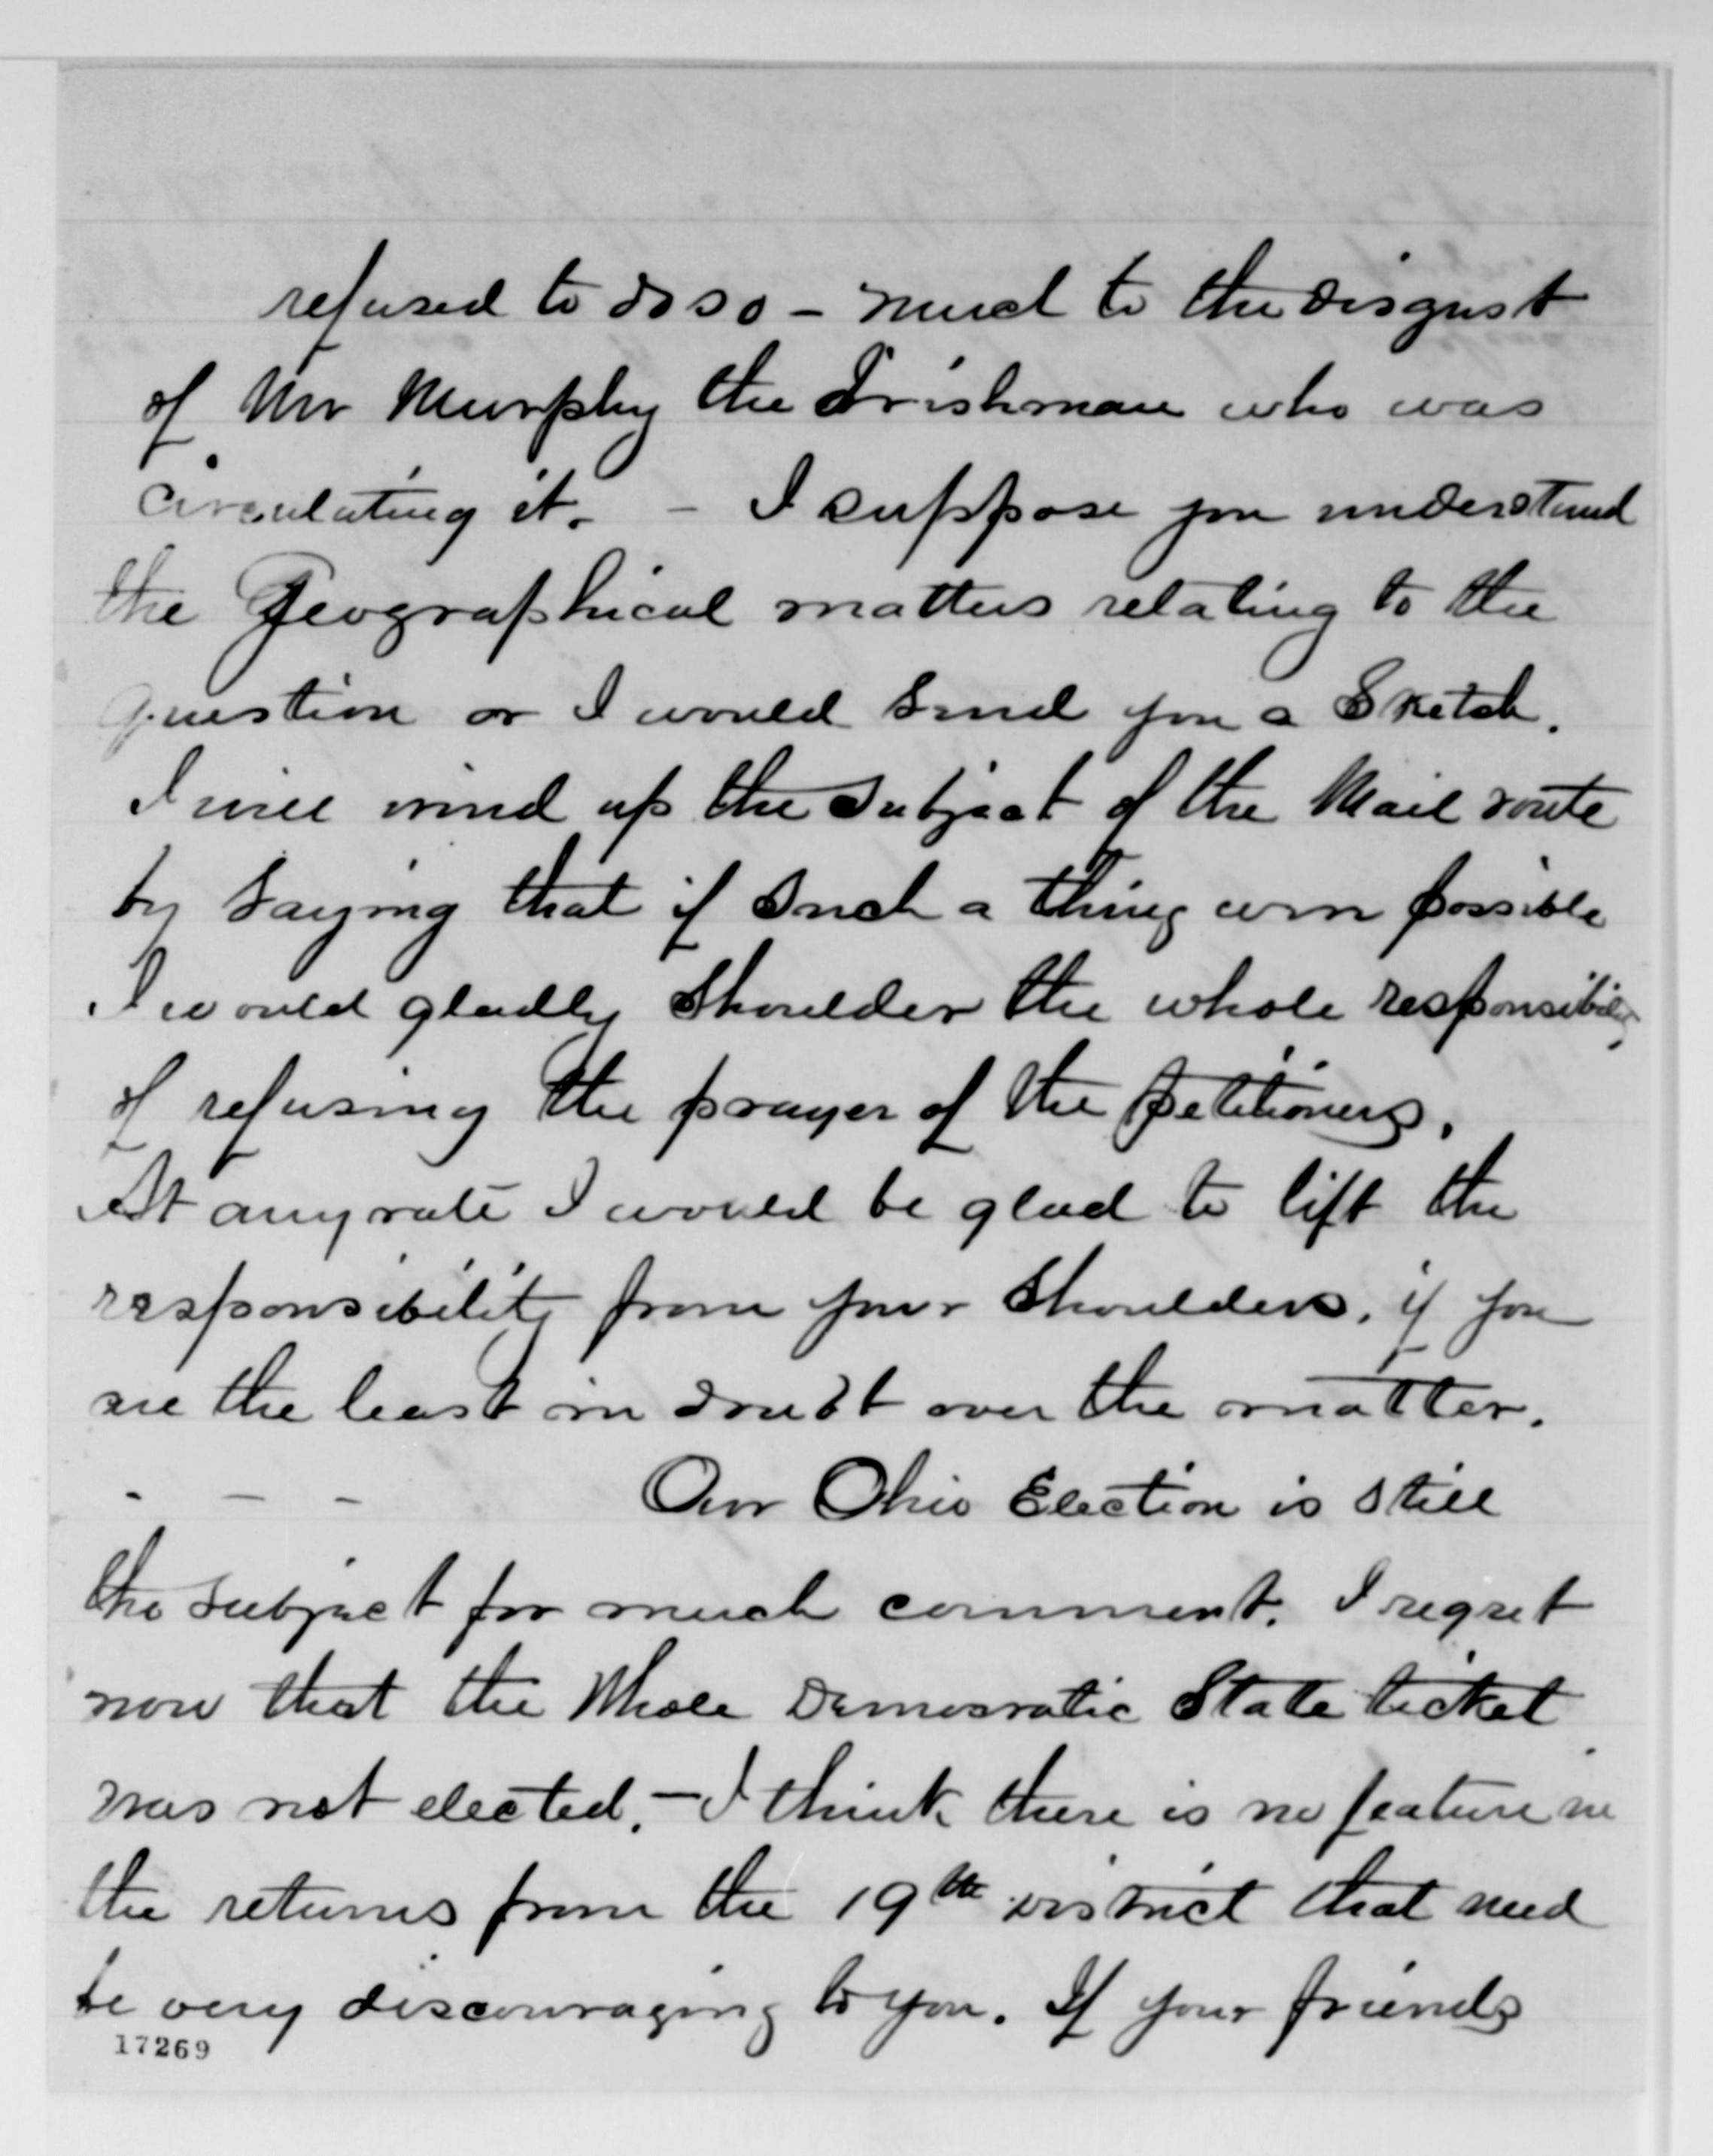 refused to do so - much to the disgust
of Mr Murphy the Irishman who was
circulating it. - I suppose you understand
the Geographical matters relating to the
question or I would send you a Sketch.
I will wind up the subject of the Mail route
by saying that if such a thing were possible
I would gladly shoulder the whole responsibility
of refusing the prayer of the petitioners.
At any rate I would be glad to lift the
responsibility from your shoulders, if you
are the least in doubt over the matter.
- - - Our Ohio Election is still
the subject for much comment. I regret
now that the Whole Democratic State ticket
was not elected. - I think there is no feature in
the returns from the 19th district that need
be very discouraging to you. If your friends
17269